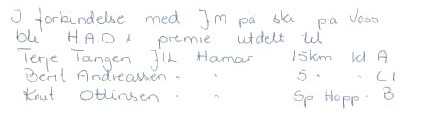 I forbindelse med JM på ski på Voss
ble H.A.D's premie utdelt til
Terje Tangen JIL Hamar 15km kl A
Berit Andreassen " " 5 " " C1
Knut Ottinsen " " Sp Hopp " B